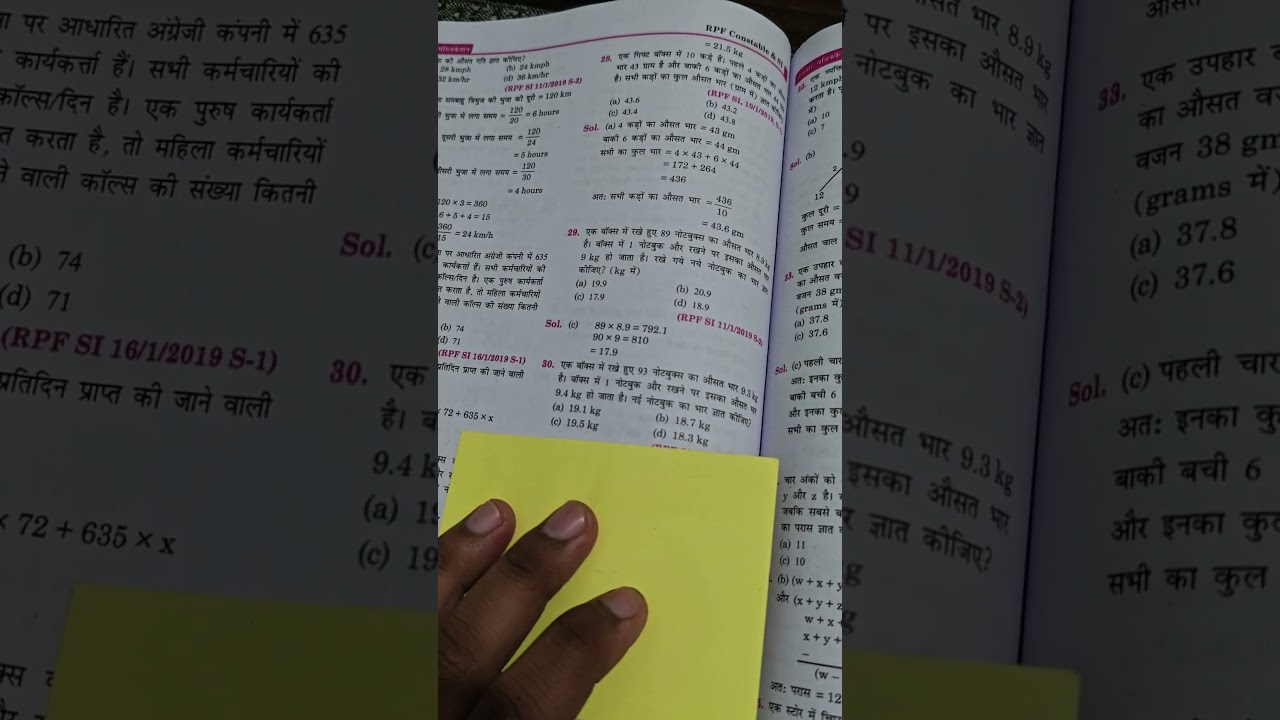 RPF Constable &
की औसत गति ज्ञात कीजिए?
28 kmph (b) 24 kmph
32 km/hr (d) 36 km/hr
(RPF SI 11/1/2019 S-2)
समबाहु त्रिभुज की भुजा की दूरी = 120 km
भुजा में लगा समय = 120/20 = 6 hours
दूसरी भुजा में लगा समय = 120/24
= 5 hours
तीसरी भुजा में लगा समय = 120/30
= 4 hours
120 × 3 = 360
6 + 5 + 4 = 15
360/15 = 24 km/h
पर आधारित अंग्रेजी कंपनी में 635
कार्यकर्त्ता हैं। सभी कर्मचारियों की
कॉल्स/दिन है। एक पुरुष कार्यकर्ता
करता है, तो महिला कर्मचारियों
वाली कॉल्स की संख्या कितनी
(b) 74
(d) 71
(RPF SI 16/1/2019 S-1)
प्रतिदिन प्राप्त की जाने वाली
× 72 + 635 × x
= 21.5 kg
28. एक गिफ्ट बॉक्स में 10 कड़े हैं। पहले 4 कड़ों का
भार 43 ग्राम है और बाकी 6 कड़ों का औसत भार 44
है। सभी कड़ों का कुल औसत भार (ग्राम में)
(RPF SI, 10/1/2019
(a) 43.6 (b) 43.2
(c) 43.4 (d) 43.8
Sol. (a) 4 कड़ों का औसत भार = 43 gm
बाकी 6 कड़ों का औसत भार = 44 gm
सभी का कुल भार = 4 × 43 + 6 × 44
= 172 + 264
= 436
अतः सभी कड़ों का औसत भार = 436/10
= 43.6 gm
29. एक बॉक्स में रखे हुए 89 नोटबुक्स का औसत भार 8.9 kg
है। बॉक्स में 1 नोटबुक और रखने पर इसका औसत भार
9 kg हो जाता है। रखे गये नये नोटबुक का भार ज्ञात
कीजिए? (kg में)
(a) 19.9 (b) 20.9
(c) 17.9 (d) 18.9
(RPF SI 11/1/2019 S-2)
Sol. (c) 89 × 8.9 = 792.1
90 × 9 = 810
= 17.9
30. एक बॉक्स में रखे हुए 93 नोटबुक्स का औसत भार 9.3 kg
है। बॉक्स में 1 नोटबुक और रखने पर इसका औसत भार
9.4 kg हो जाता है। नई नोटबुक का भार ज्ञात कीजिए?
(a) 19.1 kg (b) 18.7 kg
(c) 19.5 kg (d) 18.3 kg
12 kmph
करता है।
(a) 10
(c) 7
Sol. (b)
2
12
कुल दूरी =
कुल समय =
औसत चाल
33. एक उपहार
का औसत
वजन 38 gm
(grams में)
(a) 37.8
(c) 37.6
Sol. (c) पहली चार
अतः इनका कु
बाकी बची 6
और इनका कु
सभी का कुल
चार अंकों को
y और z है।
जबकि सबसे
का परास ज्ञात
(a) 11
(c) 10
(b) (w + x + y
और (x + y + z
w + x +
x + y +
(w −
अतः परास = 12
एक स्टोर में